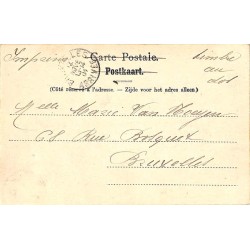 Imprimé Carte Postale. timbre
Postkaart. au
(Côté réservé à l'adresse. — Zijde voor het adres alleen.) dos
Melle Marie Van
68 Rue
Bruxelles